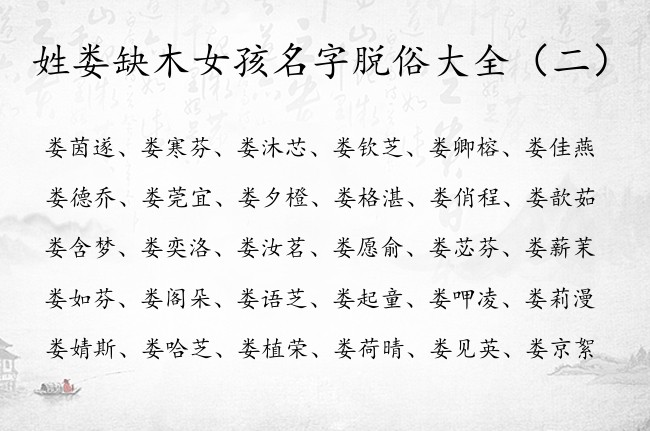 姓娄缺木女孩名字脱俗大全（二）
娄茵遂、娄寒芬、娄沐芯、娄钦芝、娄卿榕、娄佳燕
娄德乔、娄莞宜、娄夕橙、娄格湛、娄俏程、娄歆茹
娄含梦、娄奕洛、娄汝茗、娄愿俞、娄苾芬、娄薪茉
娄如芬、娄阁朵、娄语芝、娄起童、娄呷凌、娄莉漫
娄婧斯、娄哈芝、娄植荣、娄荷晴、娄见英、娄京絮